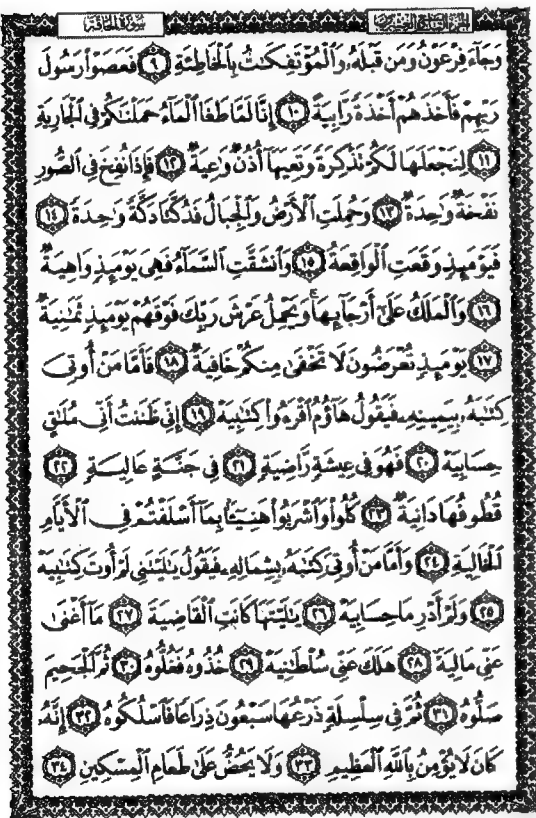 الجزء التاسع والعشرون سورة الحاقة
وَجَآءَ فِرْعَوْنُ وَمَن قَبْلَهُۥ وَٱلْمُؤْتَفِكَٰتُ بِٱلْخَاطِئَةِ ٩ فَعَصَوْا۟ رَسُولَ
رَبِّهِمْ فَأَخَذَهُمْ أَخْذَةً رَّابِيَةً ١٠ إِنَّا لَمَّا طَغَا ٱلْمَآءُ حَمَلْنَٰكُمْ فِى ٱلْجَارِيَةِ
١١ لِنَجْعَلَهَا لَكُمْ تَذْكِرَةً وَتَعِيَهَآ أُذُنٌ وَٰعِيَةٌ ١٢ فَإِذَا نُفِخَ فِى ٱلصُّورِ
نَفْخَةٌ وَٰحِدَةٌ ١٣ وَحُمِلَتِ ٱلْأَرْضُ وَٱلْجِبَالُ فَدُكَّتَا دَكَّةً وَٰحِدَةً ١٤
فَيَوْمَئِذٍ وَقَعَتِ ٱلْوَاقِعَةُ ١٥ وَٱنشَقَّتِ ٱلسَّمَآءُ فَهِىَ يَوْمَئِذٍ وَاهِيَةٌ
١٦ وَٱلْمَلَكُ عَلَىٰٓ أَرْجَآئِهَا ۚ وَيَحْمِلُ عَرْشَ رَبِّكَ فَوْقَهُمْ يَوْمَئِذٍ ثَمَٰنِيَةٌ
١٧ يَوْمَئِذٍ تُعْرَضُونَ لَا تَخْفَىٰ مِنكُمْ خَافِيَةٌ ١٨ فَأَمَّا مَنْ أُوتِىَ
كِتَٰبَهُۥ بِيَمِينِهِۦ فَيَقُولُ هَآؤُمُ ٱقْرَءُوا۟ كِتَٰبِيَهْ ١٩ إِنِّى ظَنَنتُ أَنِّى مُلَٰقٍ
حِسَابِيَهْ ٢٠ فَهُوَ فِى عِيشَةٍ رَّاضِيَةٍ ٢١ فِى جَنَّةٍ عَالِيَةٍ ٢٢
قُطُوفُهَا دَانِيَةٌ ٢٣ كُلُوا۟ وَٱشْرَبُوا۟ هَنِيٓـًٔۢا بِمَآ أَسْلَفْتُمْ فِى ٱلْأَيَّامِ
ٱلْخَالِيَةِ ٢٤ وَأَمَّا مَنْ أُوتِىَ كِتَٰبَهُۥ بِشِمَالِهِۦ فَيَقُولُ يَٰلَيْتَنِى لَمْ أُوتَ كِتَٰبِيَهْ
٢٥ وَلَمْ أَدْرِ مَا حِسَابِيَهْ ٢٦ يَٰلَيْتَهَا كَانَتِ ٱلْقَاضِيَةَ ٢٧ مَآ أَغْنَىٰ
عَنِّى مَالِيَهْ ٢٨ هَلَكَ عَنِّى سُلْطَٰنِيَهْ ٢٩ خُذُوهُ فَغُلُّوهُ ٣٠ ثُمَّ ٱلْجَحِيمَ
صَلُّوهُ ٣١ ثُمَّ فِى سِلْسِلَةٍ ذَرْعُهَا سَبْعُونَ ذِرَاعًا فَٱسْلُكُوهُ ٣٢ إِنَّهُۥ
كَانَ لَا يُؤْمِنُ بِٱللَّهِ ٱلْعَظِيمِ ٣٣ وَلَا يَحُضُّ عَلَىٰ طَعَامِ ٱلْمِسْكِينِ ٣٤